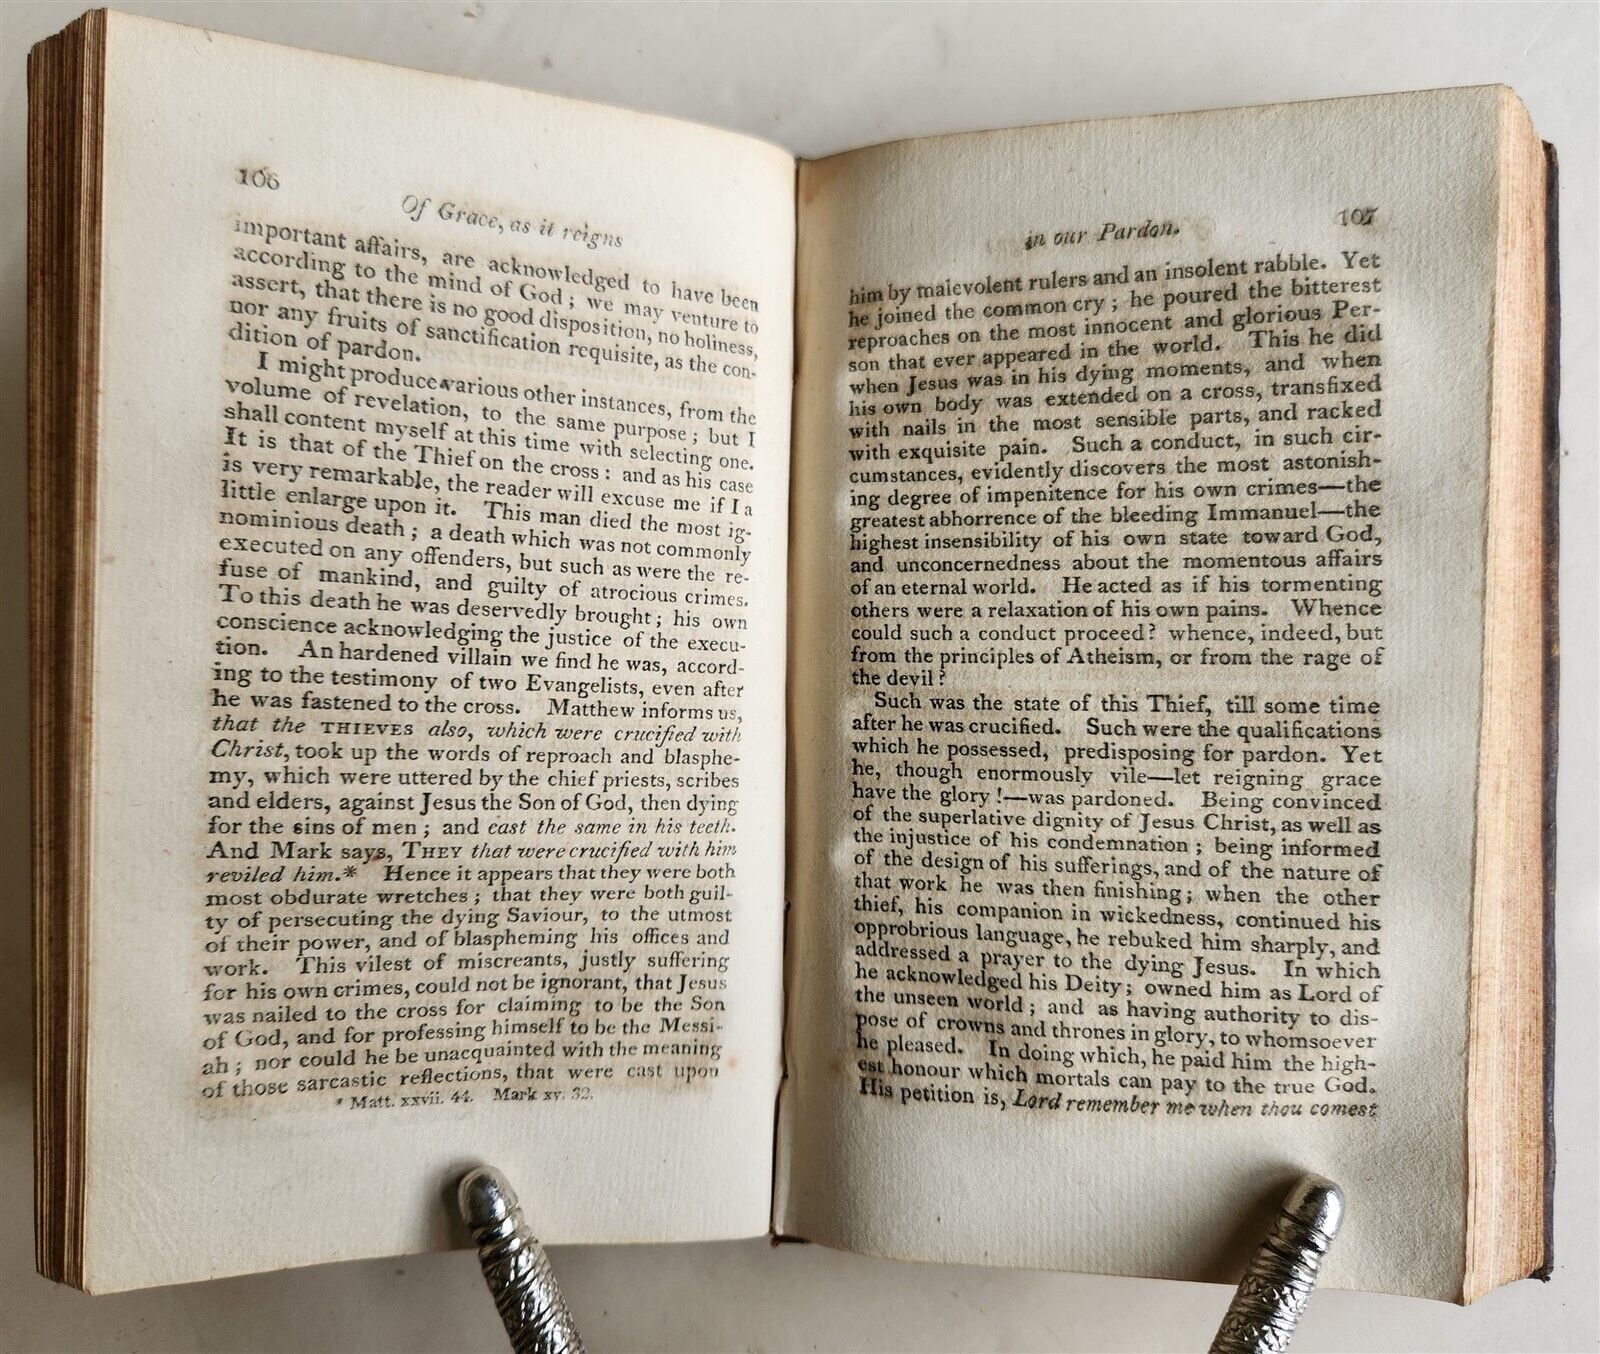 106
Of Grace, as it reigns
important affairs, are acknowledged to have been
according to the mind of God; we may venture to
assert, that there is no good disposition, no holiness,
nor any fruits of sanctification requisite, as the con-
dition of pardon.
I might produce various other instances, from the
volume of revelation, to the same purpose; but I
shall content myself at this time with selecting one.
It is that of the Thief on the cross: and as his case
is very remarkable, the reader will excuse me if I a
little enlarge upon it. This man died the most ig-
nominious death; a death which was not commonly
executed on any offenders, but such as were the re-
fuse of mankind, and guilty of atrocious crimes.
To this death he was deservedly brought; his own
conscience acknowledging the justice of the execu-
tion. An hardened villain we find he was, accord-
ing to the testimony of two Evangelists, even after
he was fastened to the cross. Matthew informs us,
that the THIEVES also, which were crucified with
Christ, took up the words of reproach and blasphe-
my, which were uttered by the chief priests, scribes
and elders, against Jesus the Son of God, then dying
for the sins of men; and cast the same in his teeth.
And Mark says, THEY that were crucified with him
reviled him.* Hence it appears that they were both
most obdurate wretches; that they were both guil-
ty of persecuting the dying Saviour, to the utmost
of their power, and of blaspheming his offices and
work. This vilest of miscreants, justly suffering
for his own crimes, could not be ignorant, that Jesus
was nailed to the cross for claiming to be the Son
of God, and for professing himself to be the Messi-
ah; nor could he be unacquainted with the meaning
of those sarcastic reflections, that were cast upon
* Matt. xxvii. 44. Mark xv. 32.
in our Pardon. 107
him by malevolent rulers and an insolent rabble. Yet
he joined the common cry; he poured the bitterest
reproaches on the most innocent and glorious Per-
son that ever appeared in the world. This he did
when Jesus was in his dying moments, and when
his own body was extended on a cross, transfixed
with nails in the most sensible parts, and racked
with exquisite pain. Such a conduct, in such cir-
cumstances, evidently discovers the most astonish-
ing degree of impenitence for his own crimes—the
greatest abhorrence of the bleeding Immanuel—the
highest insensibility of his own state toward God,
and unconcernedness about the momentous affairs
of an eternal world. He acted as if his tormenting
others were a relaxation of his own pains. Whence
could such a conduct proceed? whence, indeed, but
from the principles of Atheism, or from the rage of
the devil?
Such was the state of this Thief, till some time
after he was crucified. Such were the qualifications
which he possessed, predisposing for pardon. Yet
he, though enormously vile—let reigning grace
have the glory!—was pardoned. Being convinced
of the superlative dignity of Jesus Christ, as well as
the injustice of his condemnation; being informed
of the design of his sufferings, and of the nature of
that work he was then finishing; when the other
thief, his companion in wickedness, continued his
opprobrious language, he rebuked him sharply, and
addressed a prayer to the dying Jesus. In which
he acknowledged his Deity; owned him as Lord of
the unseen world; and as having authority to dis-
pose of crowns and thrones in glory, to whomsoever
he pleased. In doing which, he paid him the high-
est honour which mortals can pay to the true God.
His petition is, Lord remember me when thou comest